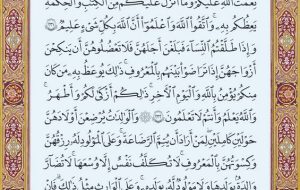 نِعْمَتَ ٱللَّهِ عَلَيْكُمْ وَمَآ أَنزَلَ عَلَيْكُم مِّنَ ٱلْكِتَٰبِ وَٱلْحِكْمَةِ
يَعِظُكُم بِهِۦ ۚ وَٱتَّقُوا۟ ٱللَّهَ وَٱعْلَمُوٓا۟ أَنَّ ٱللَّهَ بِكُلِّ شَىْءٍ عَلِيمٌ ﴿٢٣١﴾
وَإِذَا طَلَّقْتُمُ ٱلنِّسَآءَ فَبَلَغْنَ أَجَلَهُنَّ فَلَا تَعْضُلُوهُنَّ أَن يَنكِحْنَ
أَزْوَٰجَهُنَّ إِذَا تَرَٰضَوْا۟ بَيْنَهُم بِٱلْمَعْرُوفِ ۗ ذَٰلِكَ يُوعَظُ بِهِۦ مَن كَانَ
مِنكُمْ يُؤْمِنُ بِٱللَّهِ وَٱلْيَوْمِ ٱلْءَاخِرِ ۗ ذَٰلِكُمْ أَزْكَىٰ لَكُمْ وَأَطْهَرُ ۗ
وَٱللَّهُ يَعْلَمُ وَأَنتُمْ لَا تَعْلَمُونَ ﴿٢٣٢﴾ وَٱلْوَٰلِدَٰتُ يُرْضِعْنَ أَوْلَٰدَهُنَّ
حَوْلَيْنِ كَامِلَيْنِ ۖ لِمَنْ أَرَادَ أَن يُتِمَّ ٱلرَّضَاعَةَ ۚ وَعَلَى ٱلْمَوْلُودِ لَهُۥ رِزْقُهُنَّ
وَكِسْوَتُهُنَّ بِٱلْمَعْرُوفِ ۚ لَا تُكَلَّفُ نَفْسٌ إِلَّا وُسْعَهَا ۚ لَا تُضَآرَّ
وَٰلِدَةٌۢ بِوَلَدِهَا وَلَا مَوْلُودٌ لَّهُۥ بِوَلَدِهِۦ ۚ وَعَلَى ٱلْوَارِثِ مِثْلُ ذَٰلِكَ ۗ فَإِنْ